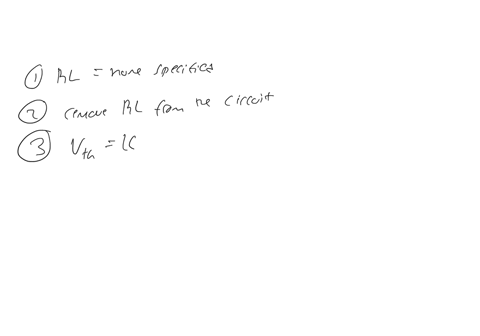 ① RL = none specified
② remove RL from the circuit
③ Vth = 10